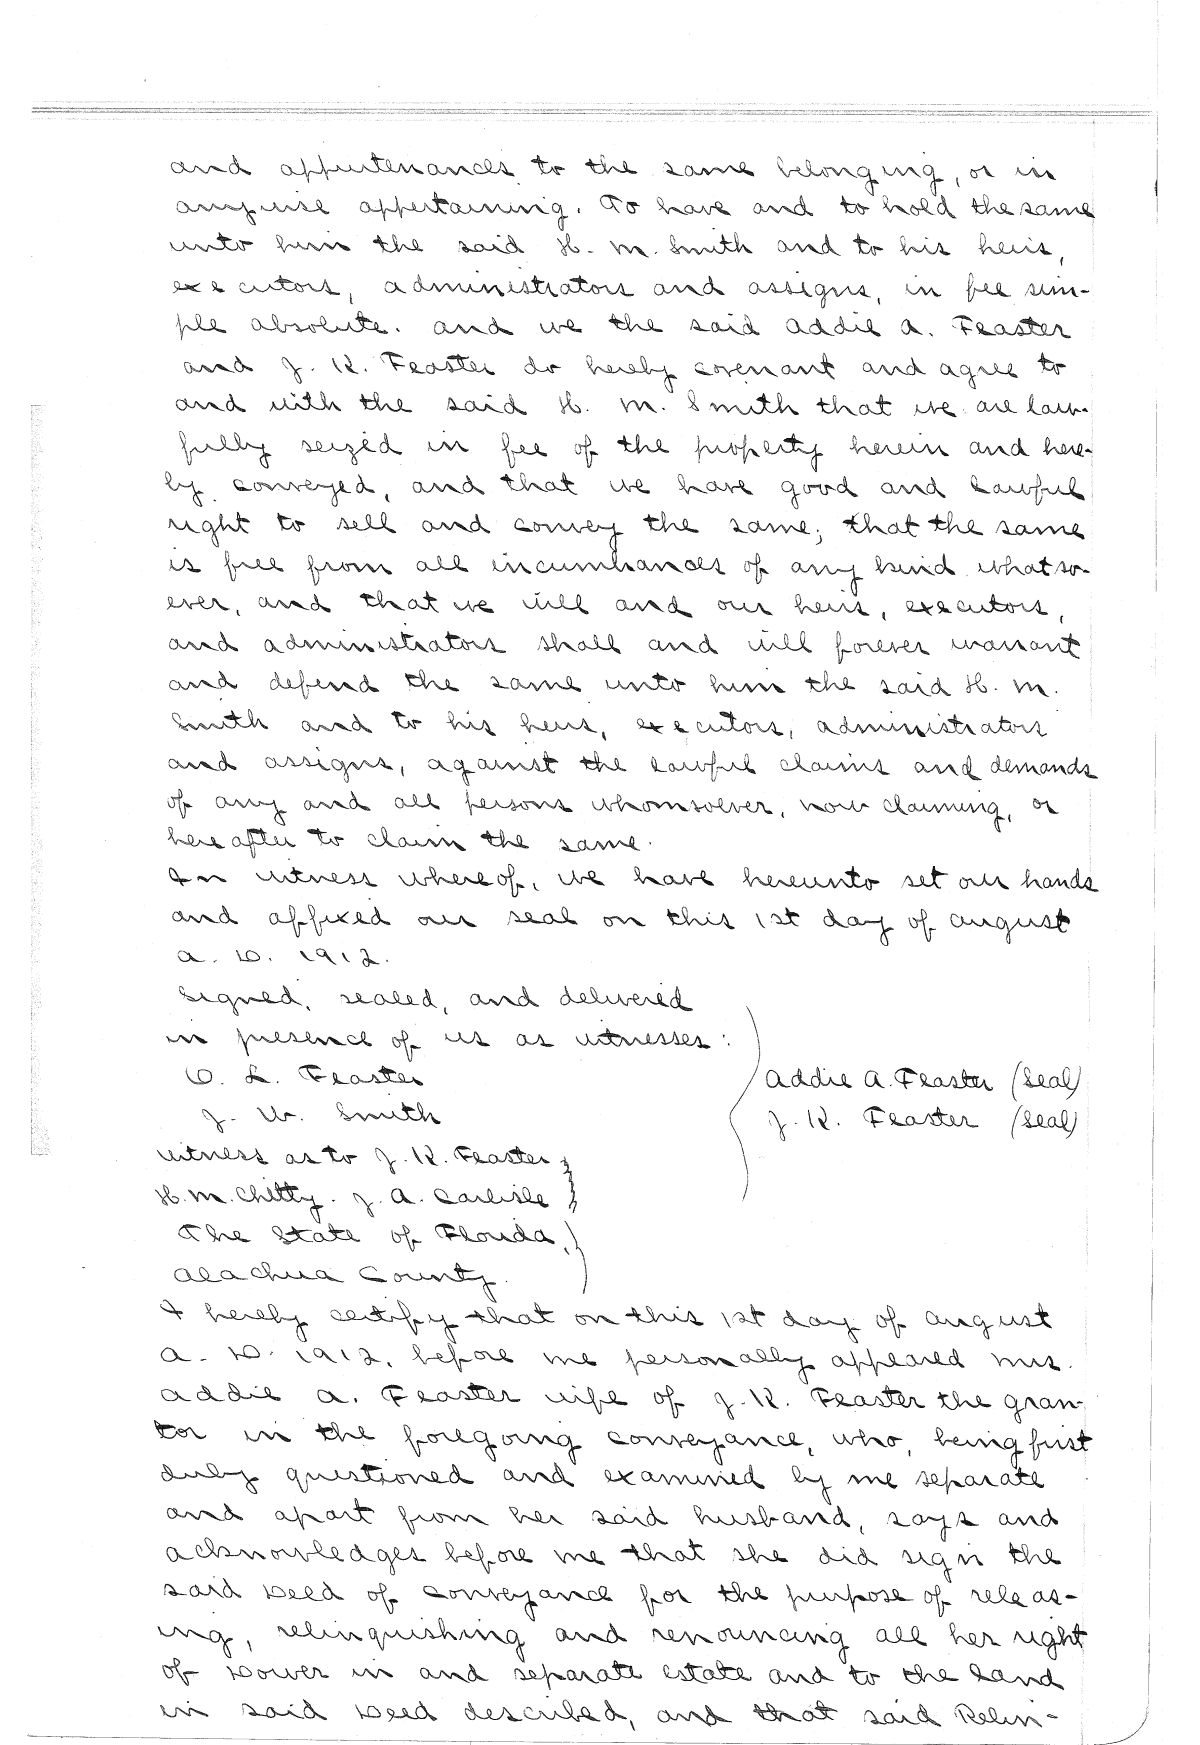 and appurtenances to the same belonging, or in
anywise appertaining. To have and to hold the same
unto him the said H. M. Smith and to his heirs,
executors, administrators and assigns, in fee sim-
ple absolute. and we the said Addie A. Feaster
and J. K. Feaster do hereby covenant and agree to
and with the said H. M. Smith that we are law-
fully seized in fee of the property herein and here-
by conveyed, and that we have good and lawful
right to sell and convey the same; that the same
is free from all incumbrances of any kind whatso-
ever, and that we will and our heirs, executors,
and administrators shall and will forever warrant
and defend the same unto him the said H. M.
Smith and to his heirs, executors, administrators
and assigns, against the lawful claims and demands
of any and all persons whomsoever, now claiming, or
hereafter to claim the same.
In witness whereof, we have hereunto set our hands
and affixed our seal on this 1st day of August
A. D. 1912.
Signed, sealed, and delivered
in presence of us as witnesses:
D. L. Feaster
Addie A. Feaster (Seal)
J. W. Smith
J. K. Feaster (Seal)
witness as to J. K. Feaster
H. M. Chitty. J. A. Carlisle
The State of Florida,
Alachua County.
I hereby certify that on this 1st day of August
A. D. 1912, before me personally appeared Mrs.
Addie A. Feaster wife of J. K. Feaster the gran-
tor in the foregoing conveyance, who, being first
duly questioned and examined by me separate
and apart from her said husband, says and
acknowledges before me that she did sign the
said Deed of Conveyance for the purpose of releas-
ing, relinquishing and renouncing all her right
of Dower in and separate estate and to the land
in said Deed described, and that said Relin-